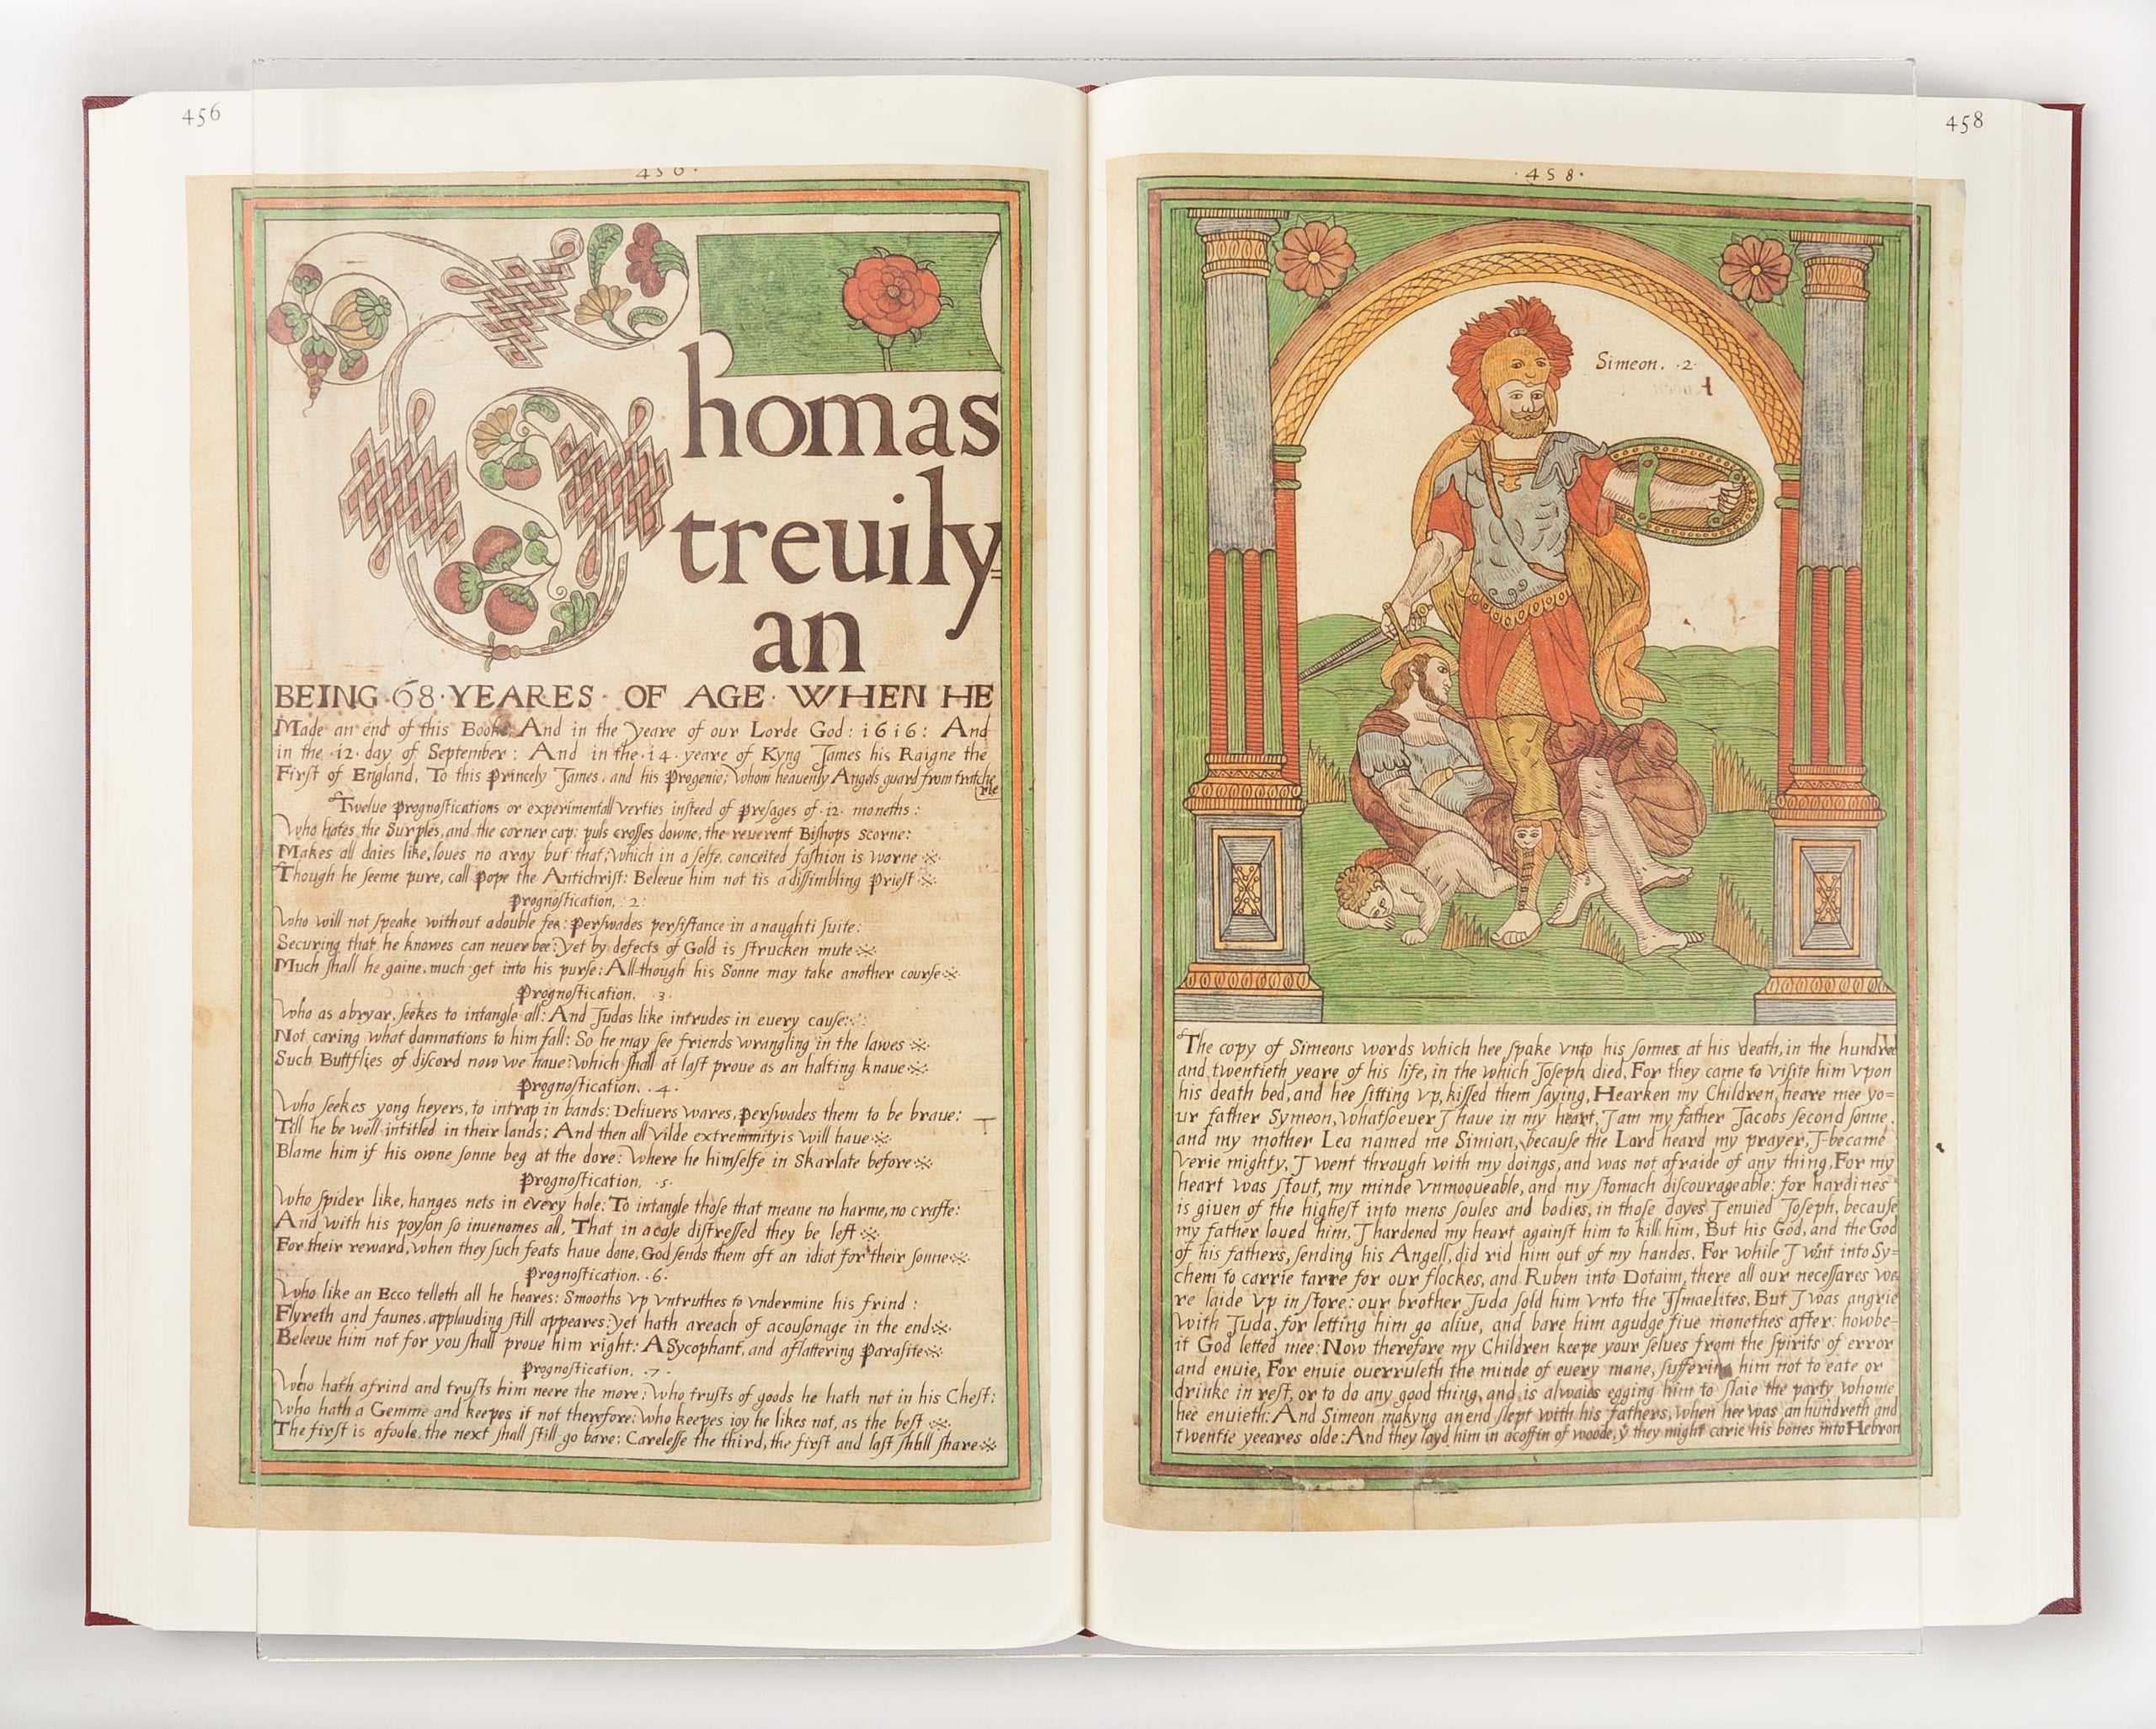 456
456.
Thomas
treuily=
an
BEING·68·YEARES· OF AGE· WHEN HE
Made an end of this Booke, And in the Yeare of our Lorde God: 1616: And
in the .12. day of September: And in the .14. yeare of Kyng James his Raigne the
First of England, To this Princely James, and his Progenie; whom heavenly Angels guard from
Twelue Prognostications or experimentall verties insteed of Presages of .12. moneths:
Who hates the Surples, and the corner cap: puls crosses downe, the reuerent Bishops scorne:
Makes all daies like, loues no aray but that; which in a selfe conceited fashion is worne
Though he seeme pure, call Pope the Antichrist: Beleeue him not tis a dissimbling Priest
Prognostication, .2:
Who will not speake without a double fee: Perswades persistance in a naughti suite:
Securing that he knowes can neuer bee: yet by defects of Gold is strucken mute
Much shall he gaine, much get into his purse: All though his Sonne may take another course
Prognostication, .3.
Who as a bryar, seekes to intangle all: And Judas like intrudes in euery cause:
Not caring what damnations to him fall: So he may see friends wrangling in the lawes
Such Buttflies of discord now we haue: which shall at last proue as an halting knaue
Prognostication. .4.
Who seekes yong heyers, to intrap in bands: Deliuers wares, perswades them to be braue:
Till he be well intitled in their lands; And then all vilde extremmityis will haue
Blame him if his owne sonne beg at the dore: Where he himselfe in Skarlate before
Prognostication, .5.
Who spider like, hanges nets in every hole: To intangle those that meane no harme, no crafte:
And with his poyson so inuenomes all, That in a case distressed they be left
For their reward, when they such feats haue done, God sends them oft an idiot for their sonne
Prognostication. .6.
Who like an Ecco telleth all he heares: Smooths vp vntruthes to vndermine his frind:
Flyreth and faunes, applauding still appeares: yet hath a reach of acousonage in the end
Beleeue him not for you shall proue him right: A Sycophant, and a flattering Parasite
Prognostication, .7.
Who hath a frind and trusts him neere the more: Who trusts of goods he hath not in his Chest:
Who hath a Gemme and keepes it not therefore: Who keepes ioy he likes not, as the best
The first is a foole, the next shall still go bare: Carelesse the third, the first and last shall share
458
·458·
Simeon. .2.
The copy of Simeons words which hee spake vnto his sonnes at his death, in the hundred
and twentieth yeare of his life, in the which Joseph died, For they came to visite him vpon
his death bed, and hee sitting vp, kissed them saying, Hearken my Children, heare mee yo=
ur father Symeon, whatsoeuer I haue in my heart, I am my father Jacobs second sonne,
and my mother Lea named me Simion, because the Lord heard my prayer, I became
verie mighty, I went through with my doings, and was not afraide of any thing, For my
heart was stout, my minde vnmoqueable, and my stomach discourageable: for hardines
is giuen of the highest into mens soules and bodies, in those dayes I enuied Joseph, because
my father loued him, I hardened my heart against him to kill him, But his God, and the God
of his fathers, sending his Angell, did rid him out of my handes. For while I went into Sy=
chem to carrie tarre for our flockes, and Ruben into Dotaim, there all our necessares we
re laide vp in store: our brother Juda sold him vnto the Ismaelites, But I was angrie
with Juda, for letting him go aliue, and bare him a gudge fiue monethes after: howbe-
it God letted mee: Now therefore my Children keepe your selues from the spirits of error
and enuie, For enuie ouerruleth the minde of euery mane, suffering him not to eate or
drinke in rest, or to do any good thing, and is alwaies egging him to slaie the party whome
hee enuieth: And Simeon makyng an end slept with his fathers, when hee was an hundreth and
twentie yeeares olde: And they layd him in a coffin of woode, ẏ they might carie his bones into Hebron